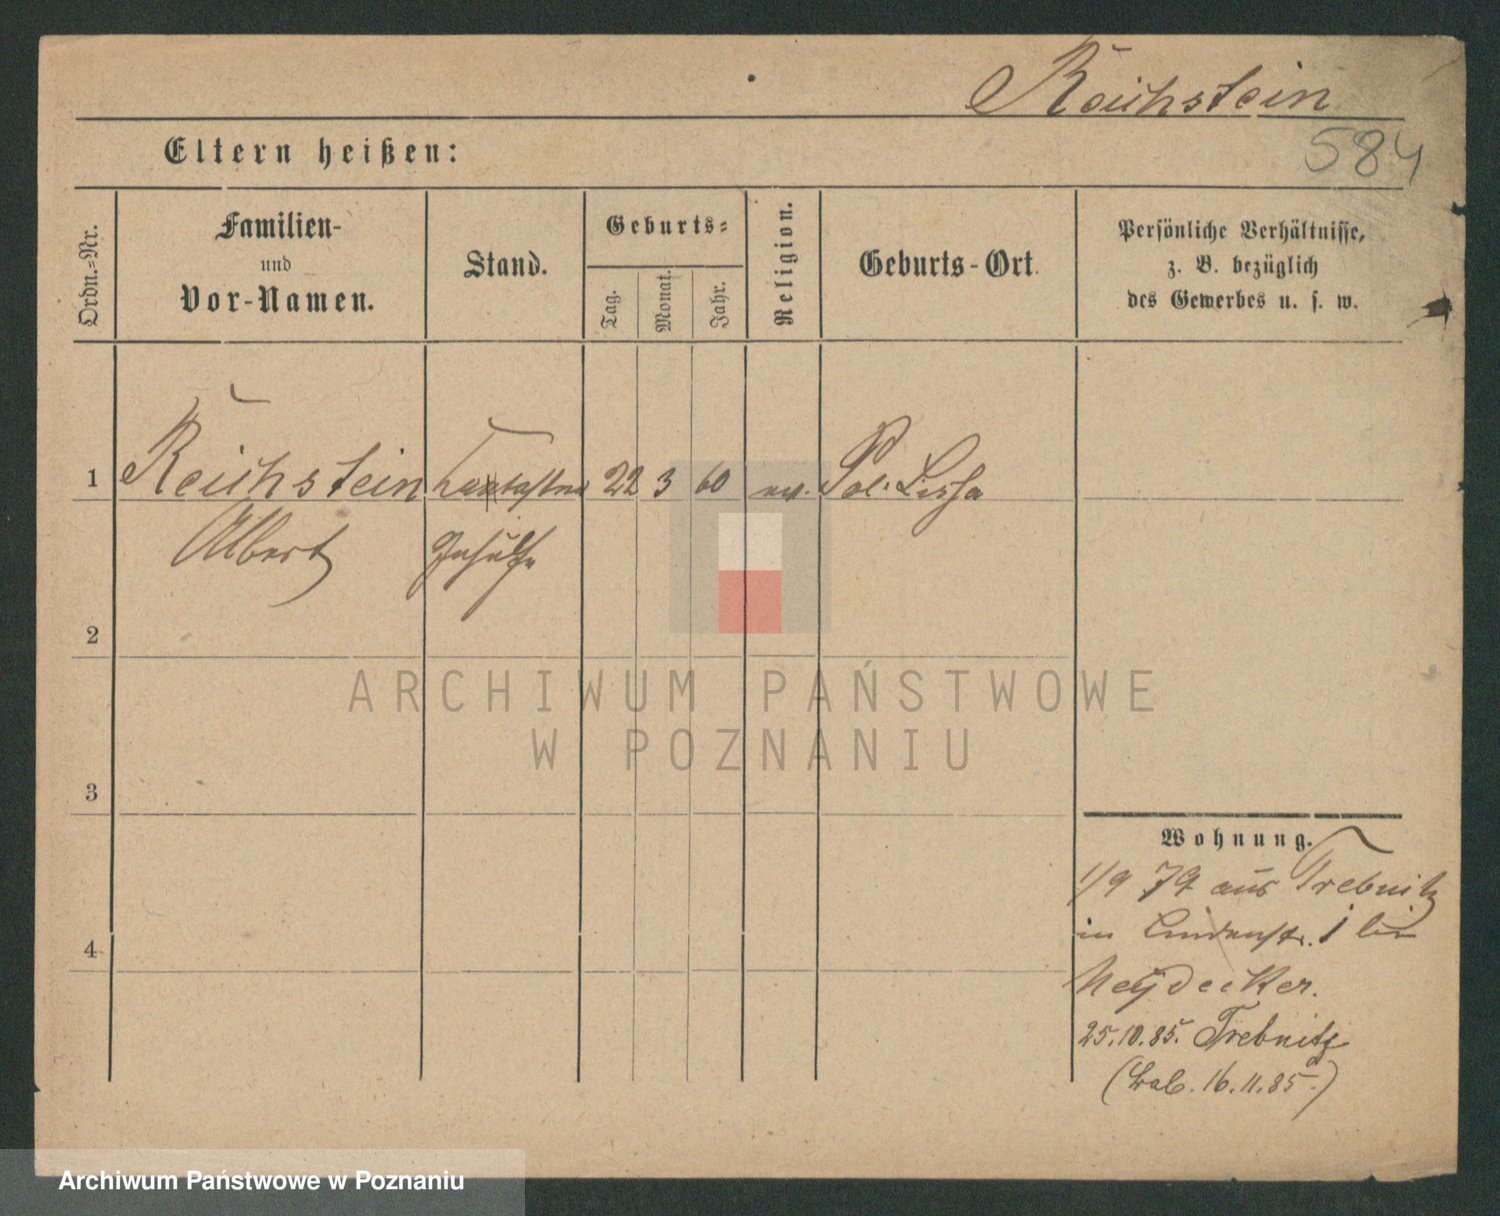 Reichstein
584
Eltern heißen:
Ordn.-Nr.
Familien-
und
Vor-Namen.
Stand.
Geburts-
Tag.
Monat.
Jahr.
Religion.
Geburts-Ort.
Persönliche Verhältnisse,
z. B. bezüglich
des Gewerbes u. s. w.
1 Reichstein 22 3 60 ev. Pol. Lissa
Albert Gehülfe
2
3
4
Wohnung.
1/9 79 aus Trebnitz
in Lindenstr. 1 bei
Neydecker.
25.10.85. Trebnitz
16.11.85.)
ARCHIWUM PAŃSTWOWE
W POZNANIU
Archiwum Państwowe w Poznaniu